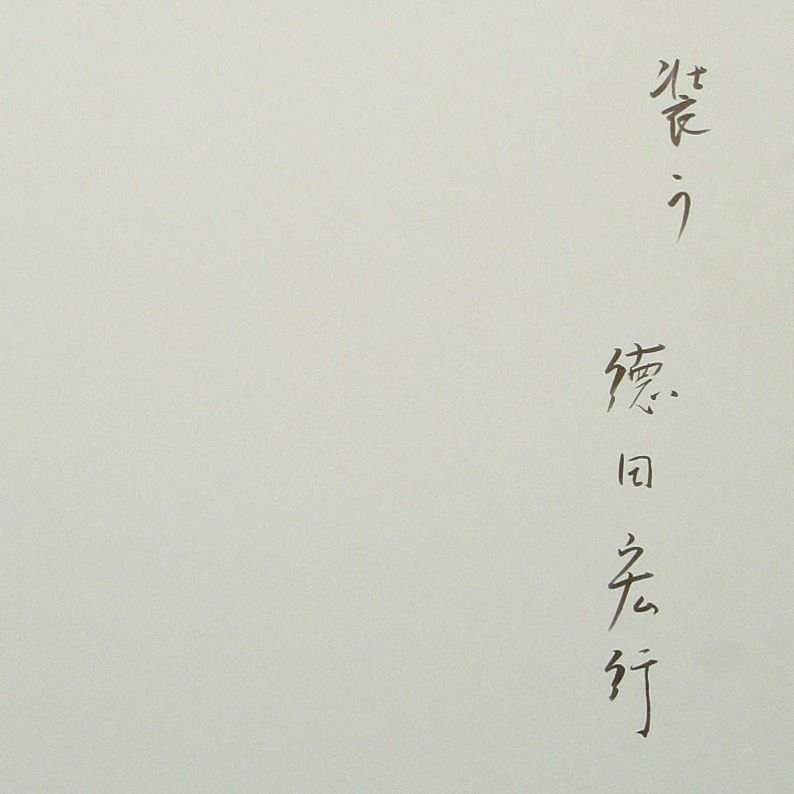 装う
徳田宏行